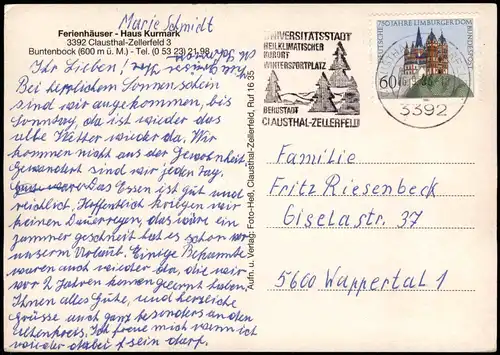 Marie Schmidt
Ferienhäuser - Haus Kurmark
3392 Clausthal-Zellerfeld 3
Buntenbock (600 m ü. M.) - Tel. (0 53 23) 21 98
Ihr Lieben!
Bei herrlichem Sonnenschein
sind wir angekommen, bis
Sonntag, da ist wieder das
alte Wetter wieder da. Wir
kommen nicht aus der Gewohnheit
Gewandert sind wir jeden Tag,
Das Essen ist gut und
reichlich. Hoffentlich kriegen wir
keinen Dauerregen, das wäre ein
Jammer geschneit hat es schon vor
unserm Urlaub. Einige Bekannte
waren auch wieder da, die wir
vor 2 Jahren kennengelernt haben.
Ihnen alles Gute, und herzliche
Grüsse auch ganz besonders an den
Altenkreis. Ich freue mich wenn ich
wieder dabei sein darf.
Aufn. u. Verlag: Foto-Heß, Clausthal-Zellerfeld, Ruf 16 35
UNIVERSITÄTSSTADT
HEILKLIMATISCHER
KURORT
WINTERSPORTPLATZ
BERGSTADT
CLAUSTHAL-ZELLERFELD
750 JAHRE LIMBURGER DOM
DEUTSCHE BUNDESPOST
60
3392
Familie
Fritz Riesenbeck
Giselastr. 37
5600 Wuppertal 1